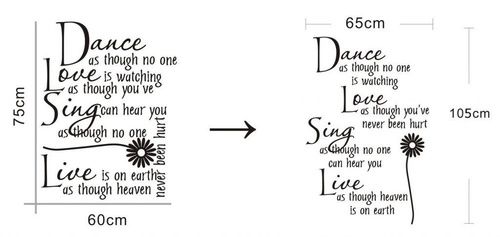 75cm
Dance
as though no one
Love is watching
as though you've
Sing can hear you
as though no one
never been hurt
Live is on earth
as though heaven
60cm
65cm
Dance
as though no one
is watching
Love
as though you've
never been hurt
Sing
as though no one
can hear you
Live
as though heaven
is on earth
105cm